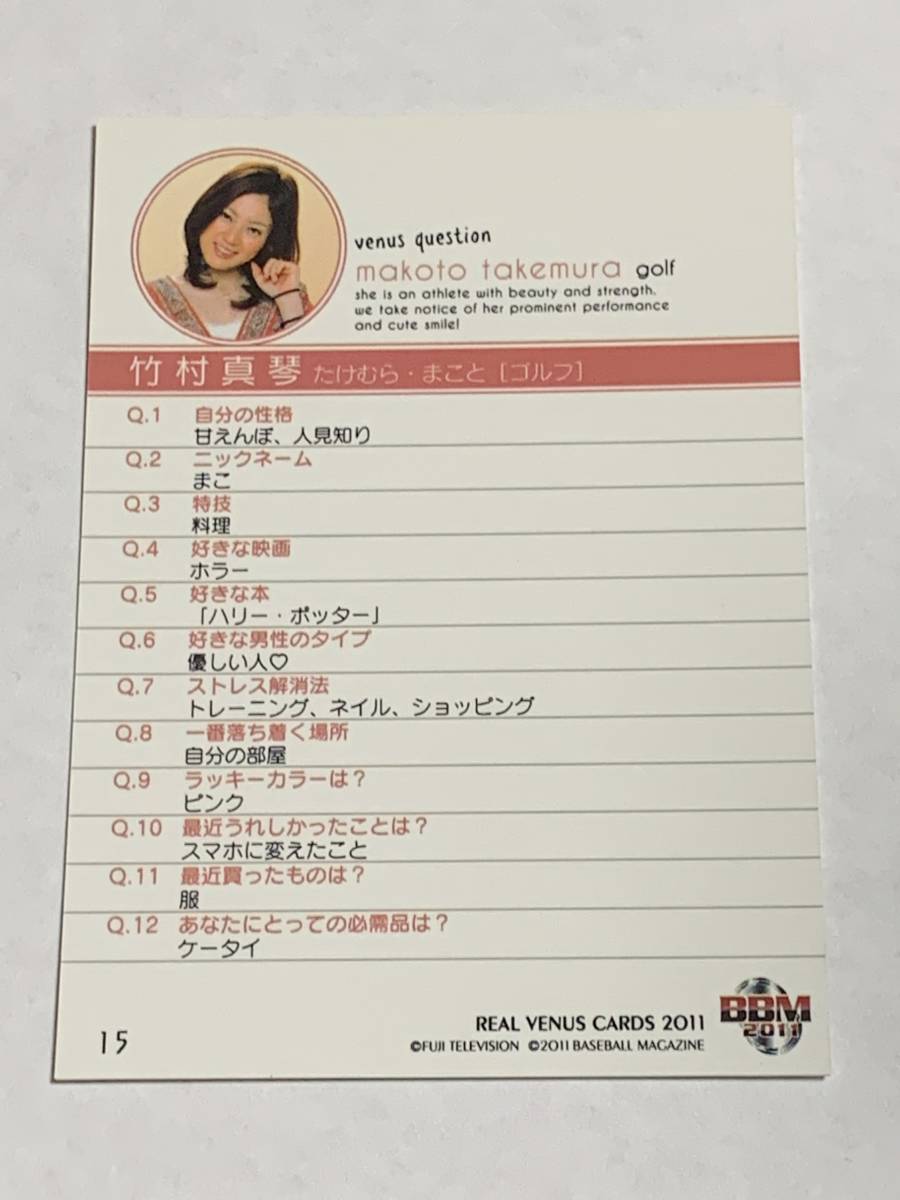 venus question
makoto takemura golf
she is an athlete with beauty and strength.
we take notice of her prominent performance
and cute smile!
竹村真琴 たけむら・まこと [ゴルフ]
Q.1 自分の性格
甘えんぼ、人見知り
Q.2 ニックネーム
まこ
Q.3 特技
料理
Q.4 好きな映画
ホラー
Q.5 好きな本
「ハリー・ポッター」
Q.6 好きな男性のタイプ
優しい人♡
Q.7 ストレス解消法
トレーニング、ネイル、ショッピング
Q.8 一番落ち着く場所
自分の部屋
Q.9 ラッキーカラーは？
ピンク
Q.10 最近うれしかったことは？
スマホに変えたこと
Q.11 最近買ったものは？
服
Q.12 あなたにとっての必需品は？
ケータイ
BBM
2011
REAL VENUS CARDS 2011
©FUJI TELEVISION ©2011 BASEBALL MAGAZINE
15